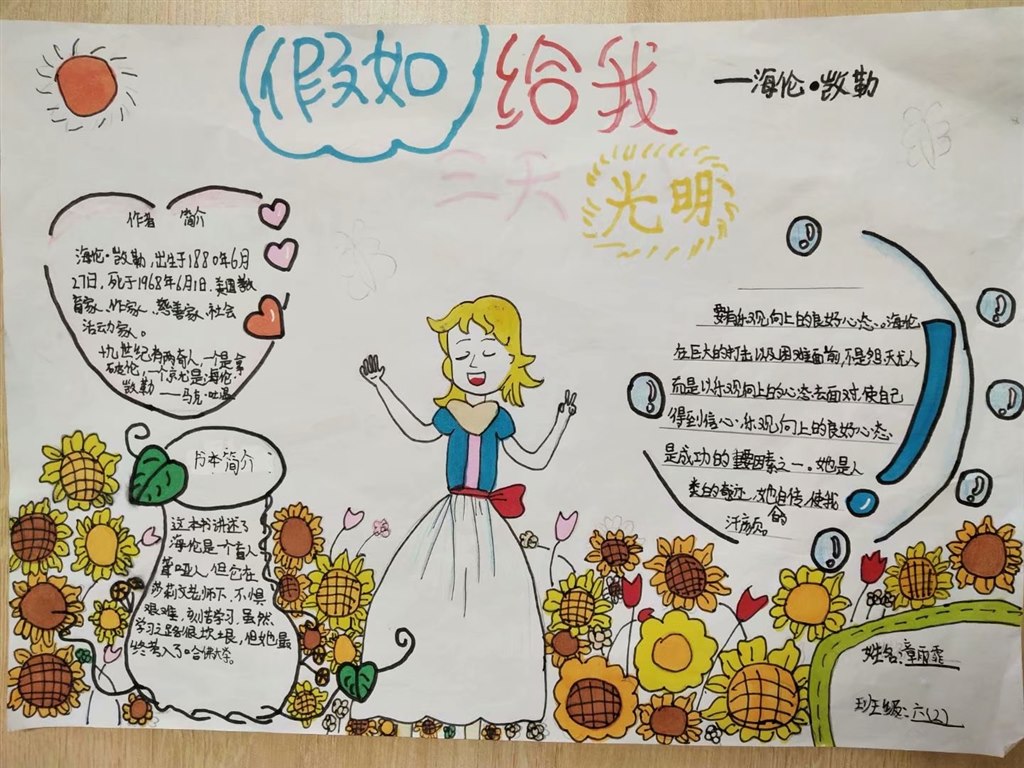 假如给我
——海伦·凯勒
三天光明
作者 简介
海伦·凯勒,出生于1880年6月
27日,死于1968年6月1日.美国教
育家、作家、慈善家、社会
活动家。
十九世纪有两奇人,一个是拿
破伦,一个就是海伦·
凯勒 ——马克·吐温
书本简介
这本书讲述了
海伦是一个盲人
聋哑人,但它在
莎莉文老师下,不惧
艰难、刻苦学习,虽然
学习之路很坎坷,但她最
终考入了哈佛大学。
要有乐观向上的良好心态。海伦
在巨大的打击以及困难面前,不是怨天尤人
而是以乐观向上的心态去面对,使自己
得到信心.乐观向上的良好心态
是成功的要因素之一。她是人
类的奇迹,她的自信,使我
汗颜
姓名:童雨霏
班级:六(2)